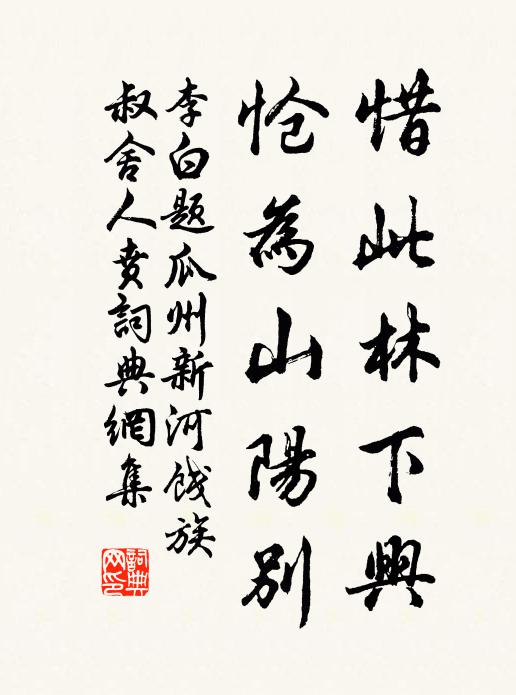 惜此林下興
怆為山陽別
李白题瓜州新河餞族
叔舍人賁詞典網集
詞典网印